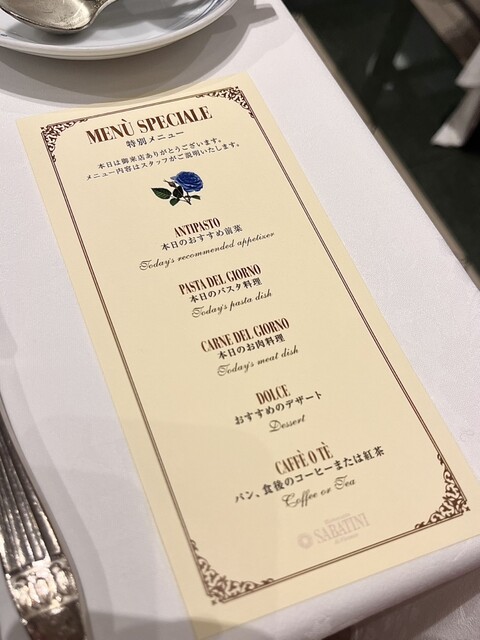 MENÙ SPECIALE
特別メニュー
本日は御来店ありがとうございます。
メニュー内容はスタッフがご説明いたします。
ANTIPASTO
本日のおすすめ前菜
Today's recommended appetizer
PASTA DEL GIORNO
本日のパスタ料理
Today's pasta dish
CARNE DEL GIORNO
本日のお肉料理
Today's meat dish
DOLCE
おすすめのデザート
Dessert
CAFFÈ O TÈ
パン、食後のコーヒーまたは紅茶
Coffee or Tea
SABATINI